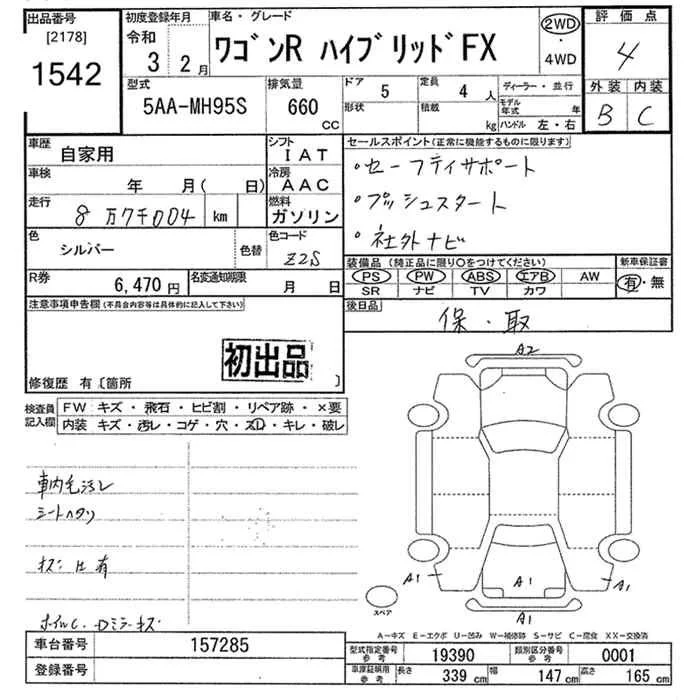 出品番号
[2178]
1542
初度登録年月
令和
3 2月
車名・グレード
ワゴンR ハイブリッドFX
2WD
・
4WD
評価点
4
外装 内装
B C
型式
5AA-MH95S
排気量
660
CC
ドア
5
形状
定員
4 人
積載
kg
ディーラー・並行
モデル年式 年
ハンドル 左・右
車歴
自家用
車検
年 月( 日)
走行
8万7千004 km
シフト
IAT
冷房
AAC
燃料
ガソリン
色
シルバー
色替
色コード
Z2S
R券
6,470円
名変通知期限
月 日
セールスポイント(正常に機能するものに限ります)
・セーフティサポート
・プッシュスタート
・社外ナビ
装備品(純正品に限り○をつけてください)
PS PW ABS エアB AW
SR ナビ TV カワ
新車保証書
有・無
後日品
保・取
注意事項申告欄(不具合内容等は具体的に記入して下さい)
初出品
修復歴 有〔箇所 〕
検査員記入欄
FW キズ・飛石・ヒビ割・リペア跡・×要
内装 キズ・汚レ・コゲ・穴・スレ・キレ・破レ
車内毛汚レ
シートヘタリ
A2
A1
A1
A1
A1
スペア
A−キズ E−エクボ U−凹み W−補修跡 S−サビ C−腐食 XX−交換済
車台番号
157285
登録番号
型式指定番号
参考
19390
類別区分番号
参考
0001
車庫証明用
参考
長さ 339 cm 幅 147 cm 高さ 165 cm